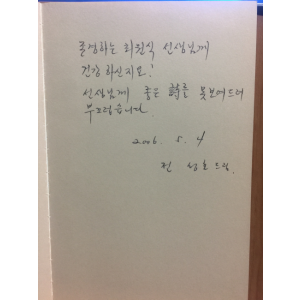 존경하는 최진식 선생님께
건강하신지요!
선생님께 좋은 詩를 못보여드려
부끄럽습니다.
2006. 5. 4
전 성호 드림.